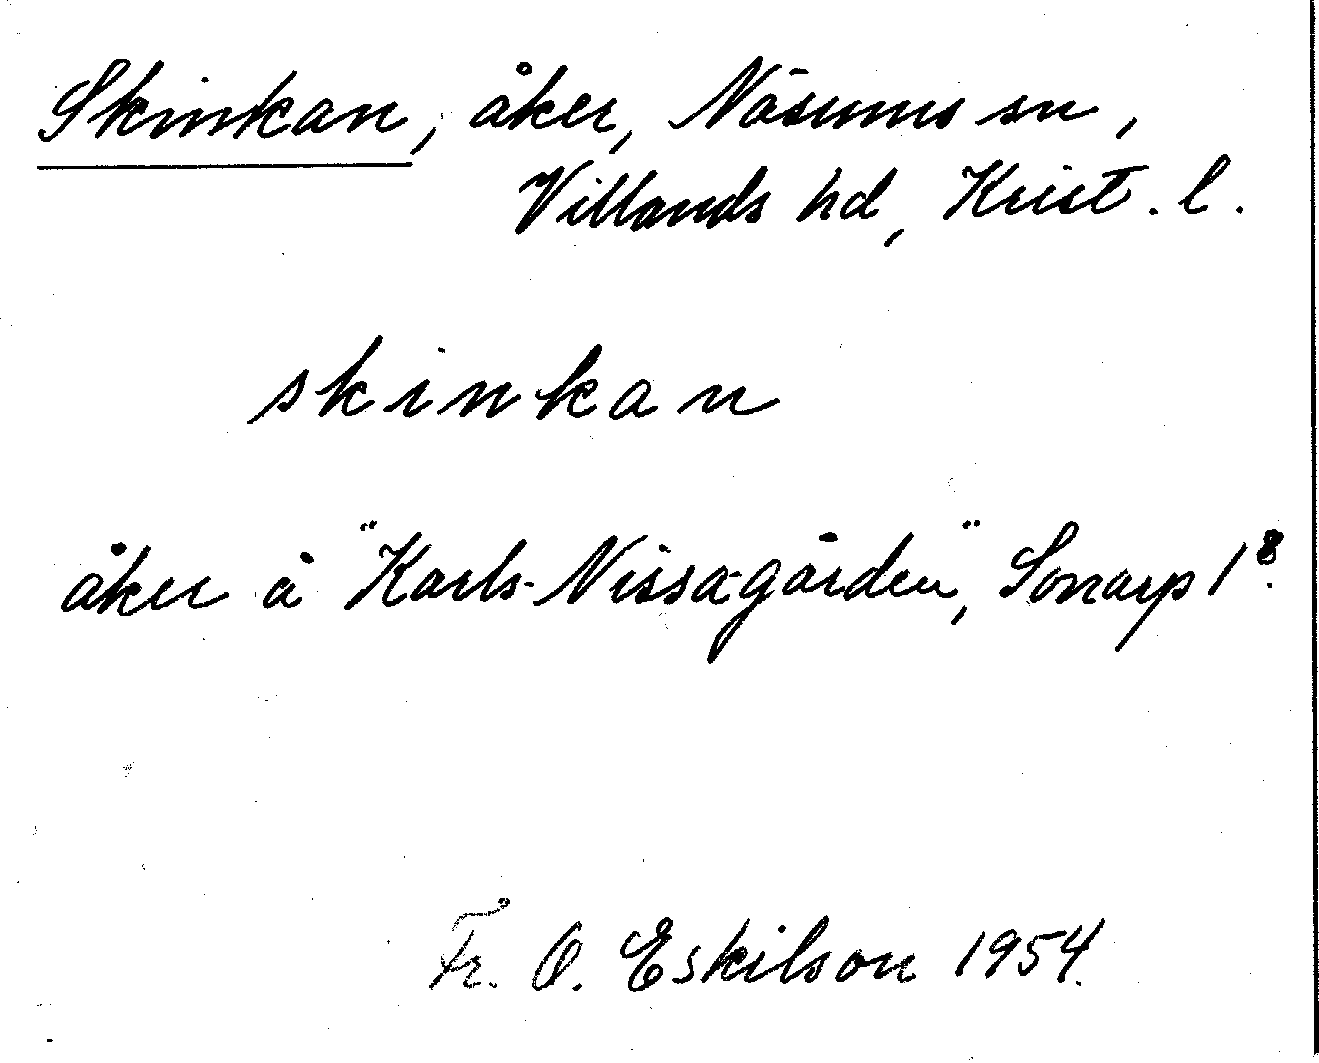 Skinkan, åker, Näsums sn,
Villands hd, Krist. l.
skinkan
åker å "Karls-Nissagården", Sonarp 1⁸.
Fr. O. Eskilson 1954.